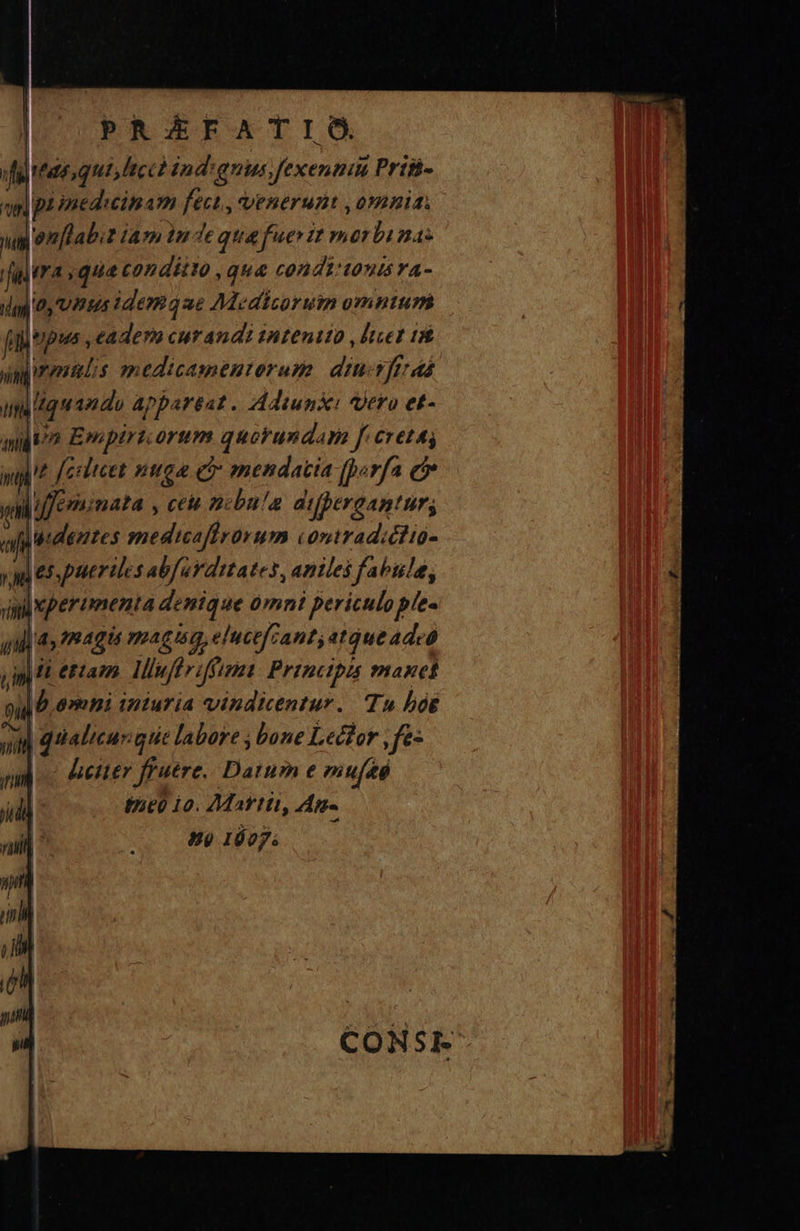 PRÆFATIO.
itas, qui, licet indignus, sexenniũ Prin-
pi medicinam feci, venerunt, omnia;
onstabit iam inde quæ fuerit morbi na-
ura, quæ conditio, quæ conditionis ra-
o, vnus idemque Medicorum omnium
opus, eadem curandi intentio, licet in
medicamentorum diuersitas
liquando appareat. Adiunxi vero et-
m Empiricorum quorundam secreta;
t scilicet nugæ & mendacia sparsa &
isseminata, ceu nebulæ dispergantur;
uidentes medicastrorum contradictio-
es, pueriles absurditates, aniles fabulæ,
xperimenta denique omni periculo ple-
a, magis magisq, elucescant, atque adeò
ti etiam Illustrissimi Principis manes
b omni iniuria vindicentur. Tu hoc
qualicunque labore, bone Lector, fe-
liciter fruere. Datum e musæo
meo 10. Martii, An-
no 1607.
CONSI-